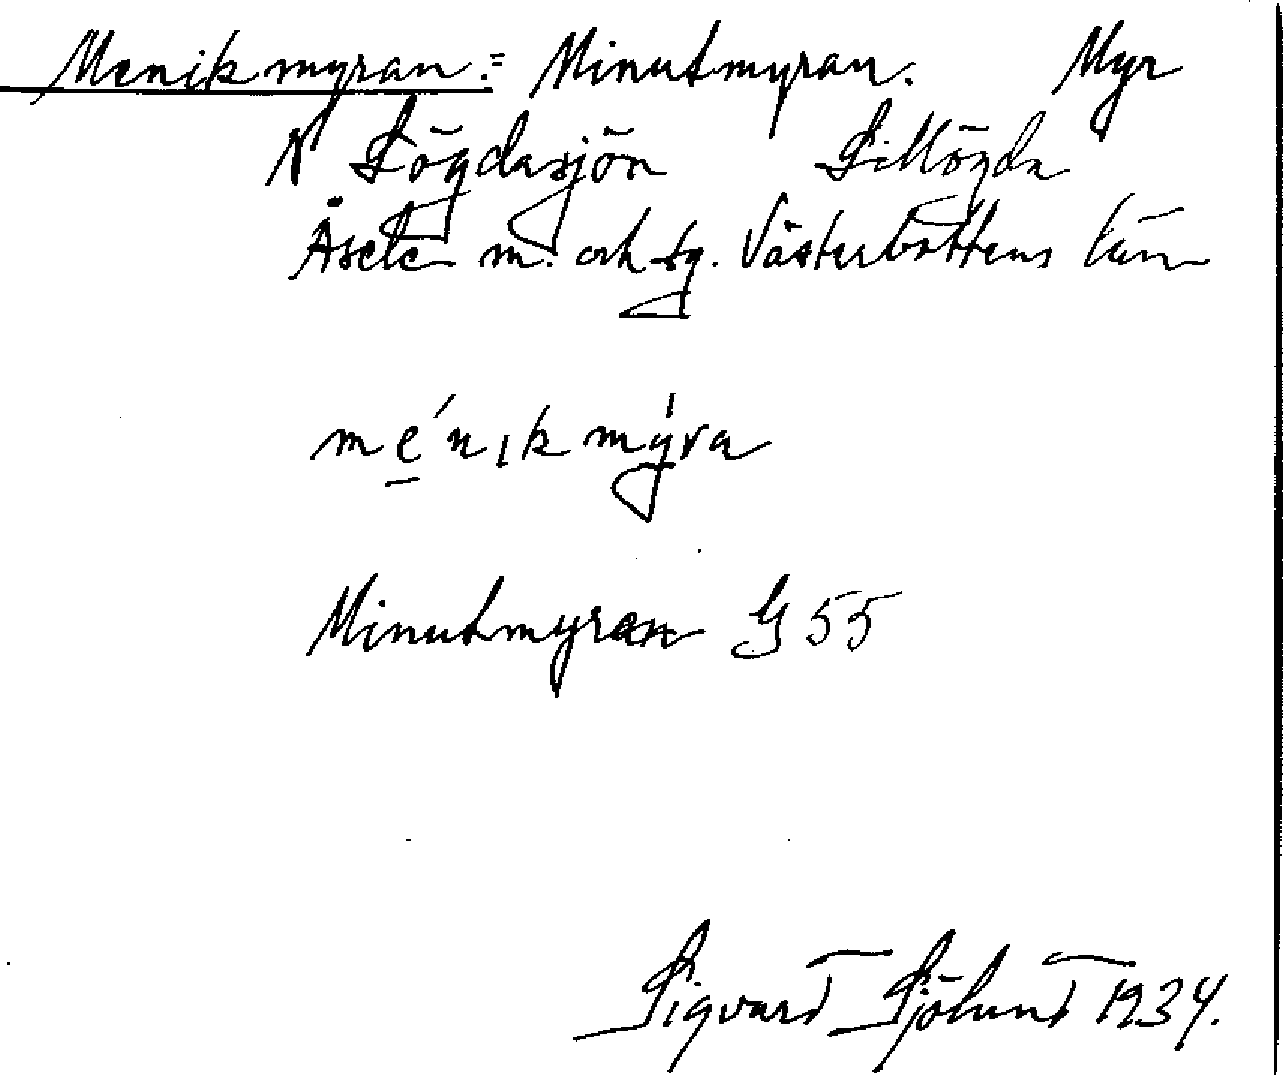 Menikmyran. = Minutmyran. Myr
N Lögdasjön Lillögda
Åsele m. och sg. Västerbottens län
mé̱nıkmy̍ra
Minutmyran G 55
Sigvard Sjölund 1934.